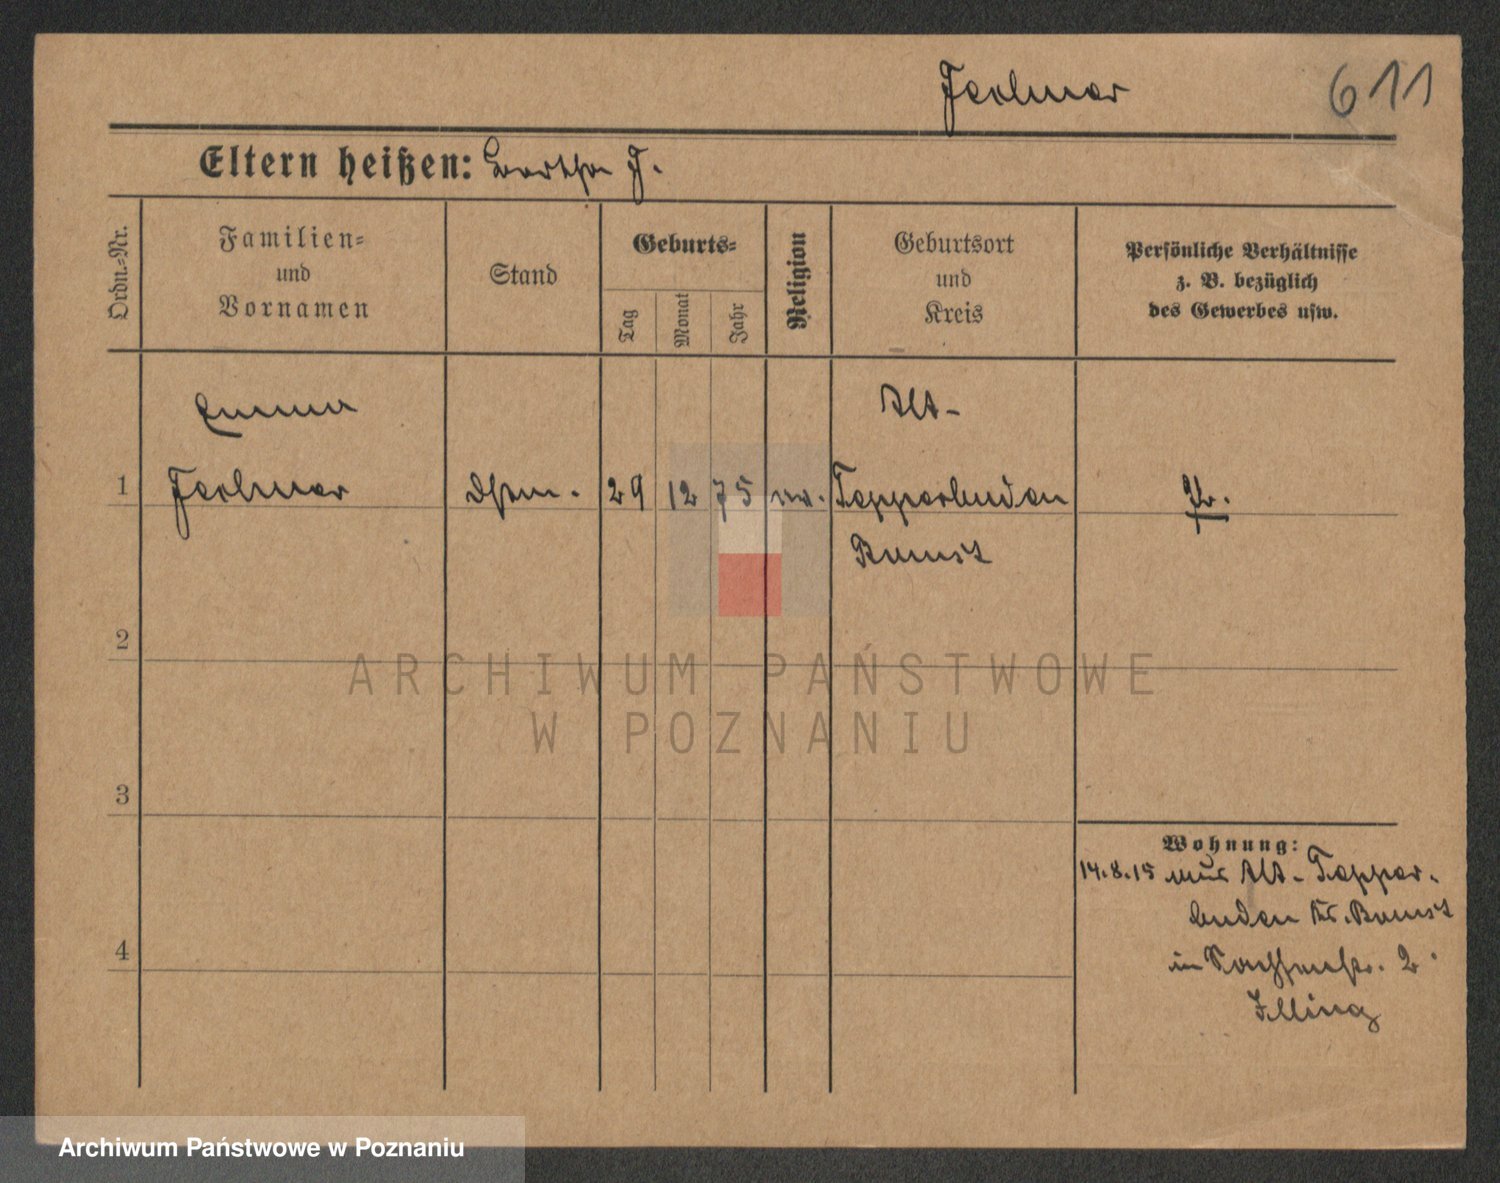 Jeolmer 611
Eltern heißen: Bertha J.
Ordn.-Nr.
Familien=
und
Vornamen
Stand
Geburts=
Tag
Monat
Jahr
Religion
Geburtsort
und
Kreis
Persönliche Verhältnisse
z. B. bezüglich
des Gewerbes usw.
Emma Alt-
1 29 12 75 ev. Tepperbuden
Bomst
2
ARCHIWUM PAŃSTWOWE
W POZNANIU
3
Wohnung:
14.8.15 aus Alt-Tepper-
4 buden Kr. Bomst
in Sachsenstr. 2
Illing
Archiwum Państwowe w Poznaniu